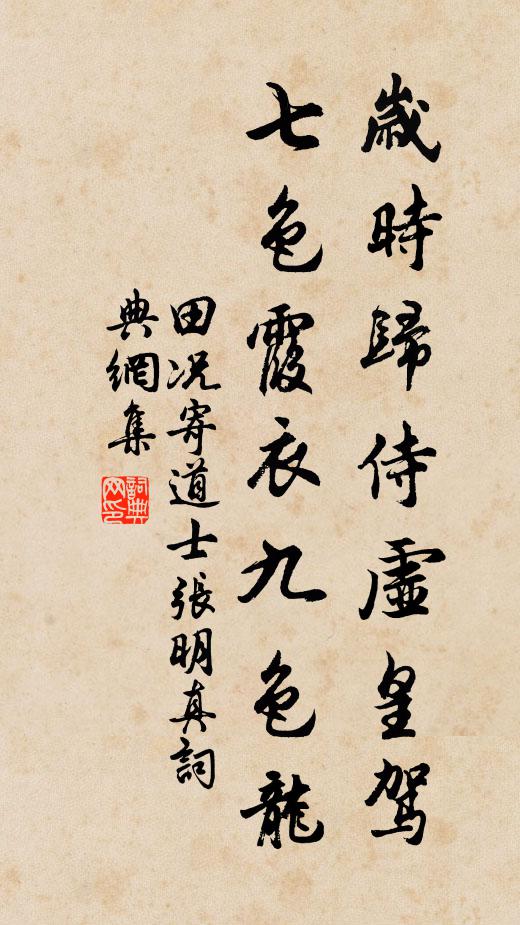 歲時歸侍虛皇駕
七色霞衣九色龍
田况寄道士張明真詞
典網集
詞典網印